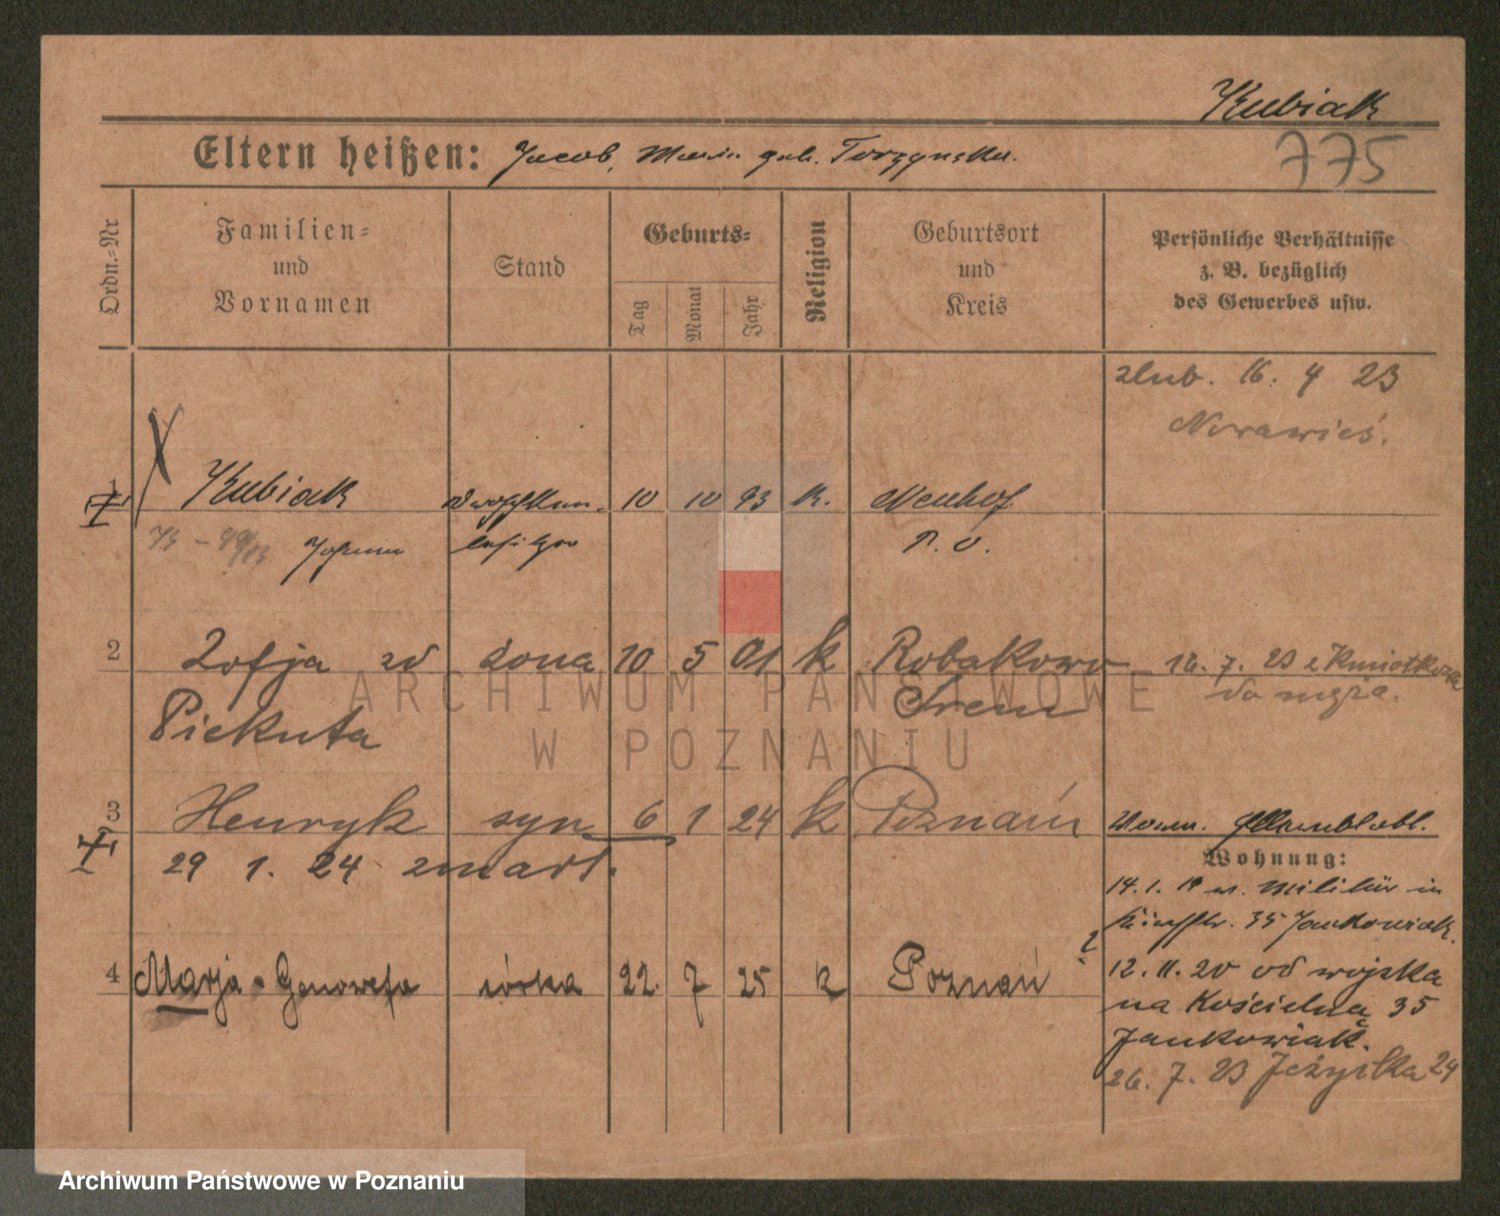 Kubiak
775
Eltern heißen: Jacob, Maria geb.
Ordn.-Nr
Familien=
und
Vornamen
Stand
Geburts=
Tag
Monat
Jahr
Religion
Geburtsort
und
Kreis
Persönliche Verhältnisse
z. B. bezüglich
des Gewerbes usw.
ślub. 16. 4 23
Nowawieś.
1 Kubiak 10 10 93 k. Neuhof
Johann P. O.
2 Zofja zd żona 10 5 01 k Robakowo 12. 7. 23 z
Piekuta Śrem do męża.
3 Henryk syn 6 1 24 k Poznań
29 1. 24 zmarł.
Wohnung:
14. 1. 19 Militär in
35 Jankowiak.
4 Marja-Genowefa córka 22. 7 25 k Poznań
12. 11. 20 od wojska
na Kościelną 35
Jankowiak.
26. 7. 23 Jeżycka 24
ARCHIWUM PAŃSTWOWE
W POZNANIU
Archiwum Państwowe w Poznaniu